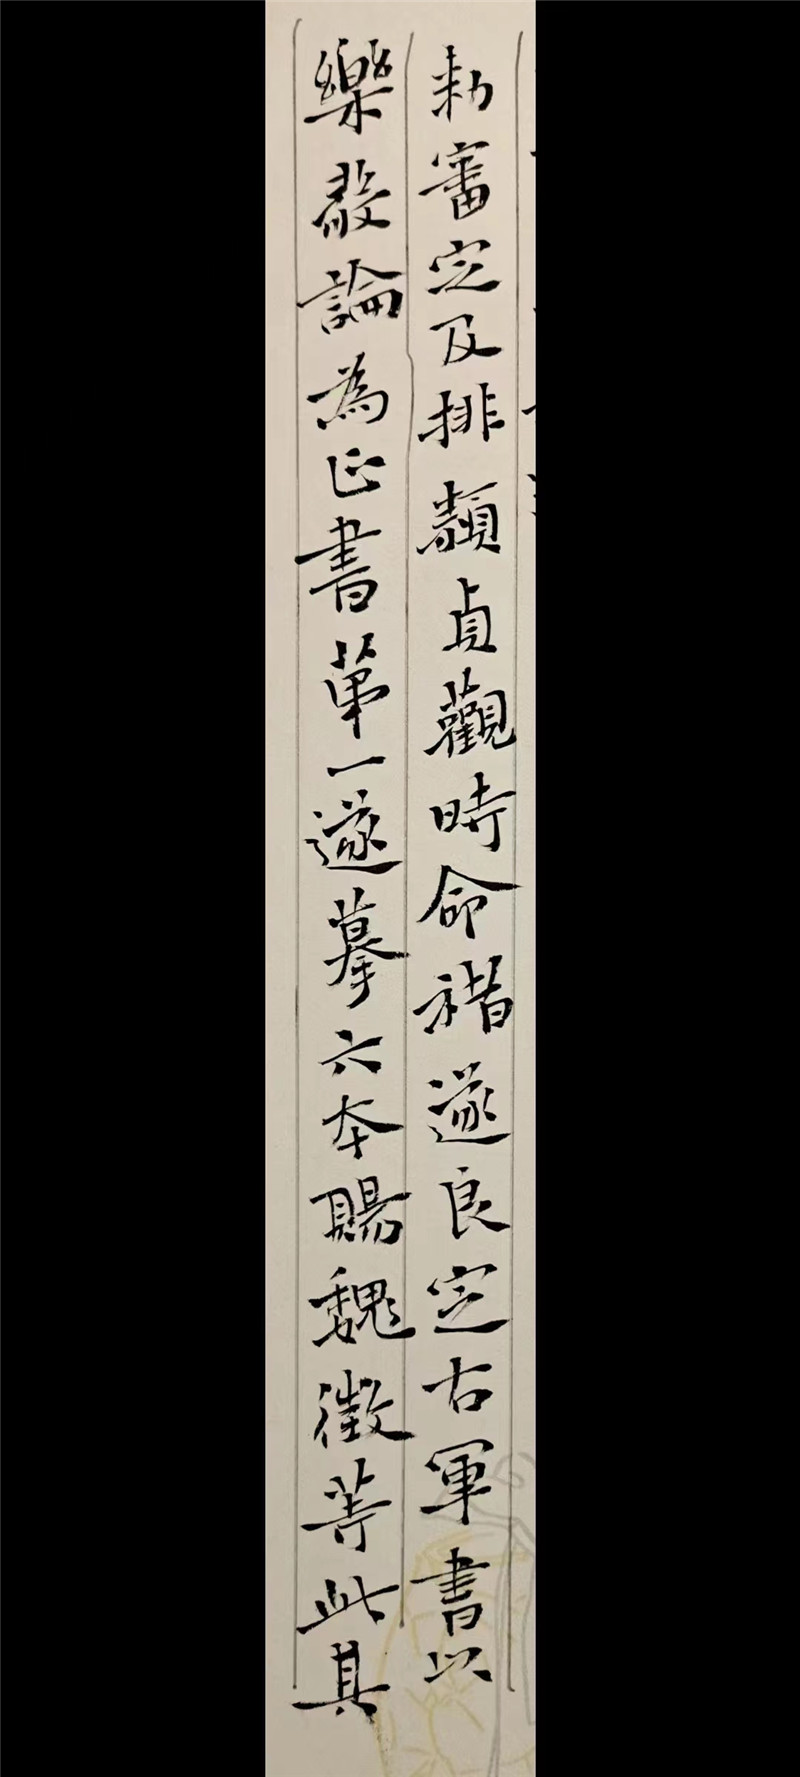 勑審定及排類貞觀時命褚遂良定右軍書以
樂毅論為正書第一遂摹六本賜魏徵等此其